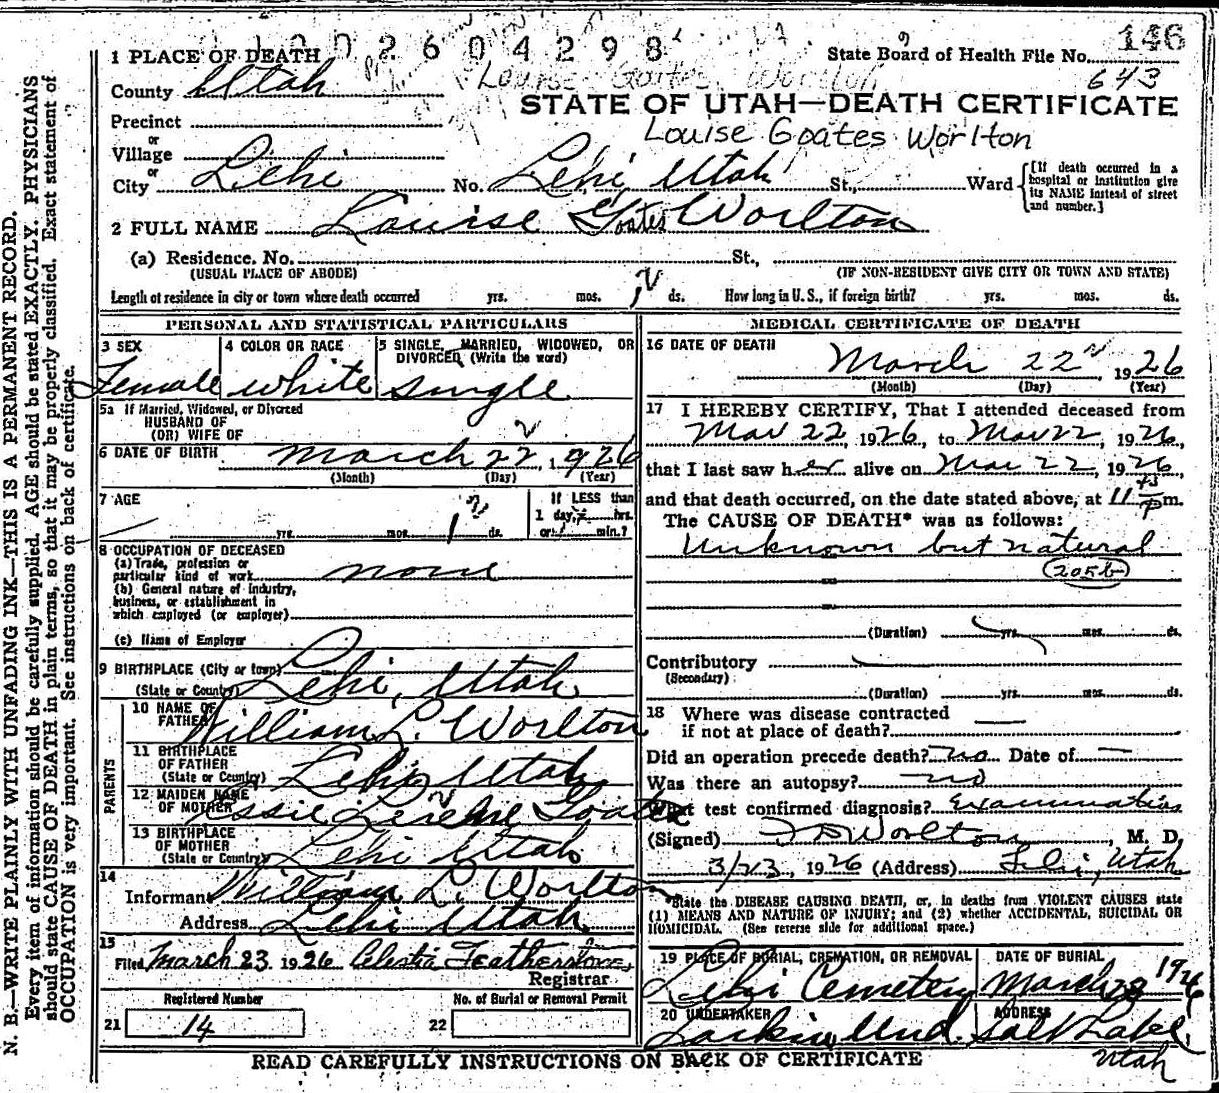 1002604298
146
1 PLACE OF DEATH
State Board of Health File No.
643
County Utah
Louise Goates Worlton
STATE OF UTAH—DEATH CERTIFICATE
Precinct
Louise Goates Worlton
or
Village
or
City Lehi No. Lehi, Utah St., Ward
{[If death occurred in a
hospital or institution give
its NAME instead of street
and number.]
2 FULL NAME Louise Goates Worlton
(a) Residence. No. St.,
(USUAL PLACE OF ABODE) (IF NON-RESIDENT GIVE CITY OR TOWN AND STATE)
Length of residence in city or town where death occurred yrs. mos. 1 ds. How long in U. S., if foreign birth? yrs. mos. ds.
PERSONAL AND STATISTICAL PARTICULARS
3 SEX
Female
4 COLOR OR RACE
white
5 SINGLE, MARRIED, WIDOWED, OR
DIVORCED (Write the word)
single
5a If Married, Widowed, or Divorced
HUSBAND OF
(OR) WIFE OF
6 DATE OF BIRTH March 22, 1926
(Month) (Day) (Year)
7 AGE
yrs. mos. 1 ds.
If LESS than
1 day, hrs.
or min.?
8 OCCUPATION OF DECEASED
(a) Trade, profession or
particular kind of work none
(b) General nature of industry,
business, or establishment in
which employed (or employer)
(c) Name of Employer
9 BIRTHPLACE (City or town)
(State or Country) Lehi, Utah
PARENTS
10 NAME OF
FATHER William L. Worlton
11 BIRTHPLACE
OF FATHER
(State or Country) Lehi, Utah
12 MAIDEN NAME
OF MOTHER Essie Goates
13 BIRTHPLACE
OF MOTHER
(State or Country) Lehi Utah
14
Informant William L. Worlton
Address Lehi Utah
15
Filed March 23, 1926 Celestia Featherstone,
Registrar
Registered Number
21 14
No. of Burial or Removal Permit
22
MEDICAL CERTIFICATE OF DEATH
16 DATE OF DEATH
March 22 1926
(Month) (Day) (Year)
17 I HEREBY CERTIFY, That I attended deceased from
Mar 22, 1926, to Mar 22, 1926,
that I last saw her alive on Mar 22, 1926,
and that death occurred, on the date stated above, at 11 45 P m.
The CAUSE OF DEATH* was as follows:
Unknown but natural
(205b)
(Duration) yrs. mos. ds.
Contributory
(Secondary)
(Duration) yrs. mos. ds.
18 Where was disease contracted
if not at place of death?
Did an operation precede death? no Date of —
Was there an autopsy? no
What test confirmed diagnosis? Examination
(Signed) Worlton, M. D.
3/23, 1926 (Address) Lehi, Utah
*State the DISEASE CAUSING DEATH, or, in deaths from VIOLENT CAUSES state
(1) MEANS AND NATURE OF INJURY; and (2) whether ACCIDENTAL, SUICIDAL OR
HOMICIDAL. (See reverse side for additional space.)
19 PLACE OF BURIAL, CREMATION, OR REMOVAL
Lehi Cemetery
DATE OF BURIAL
March 1926
20 UNDERTAKER
Larkin Und.
ADDRESS
Salt Lake,
Utah
READ CAREFULLY INSTRUCTIONS ON BACK OF CERTIFICATE
N. B.—WRITE PLAINLY WITH UNFADING INK—THIS IS A PERMANENT RECORD.
Every item of information should be carefully supplied. AGE should be stated EXACTLY. PHYSICIANS
should state CAUSE OF DEATH in plain terms, so that it may be properly classified. Exact statement of
OCCUPATION is very important. See instructions on back of certificate.